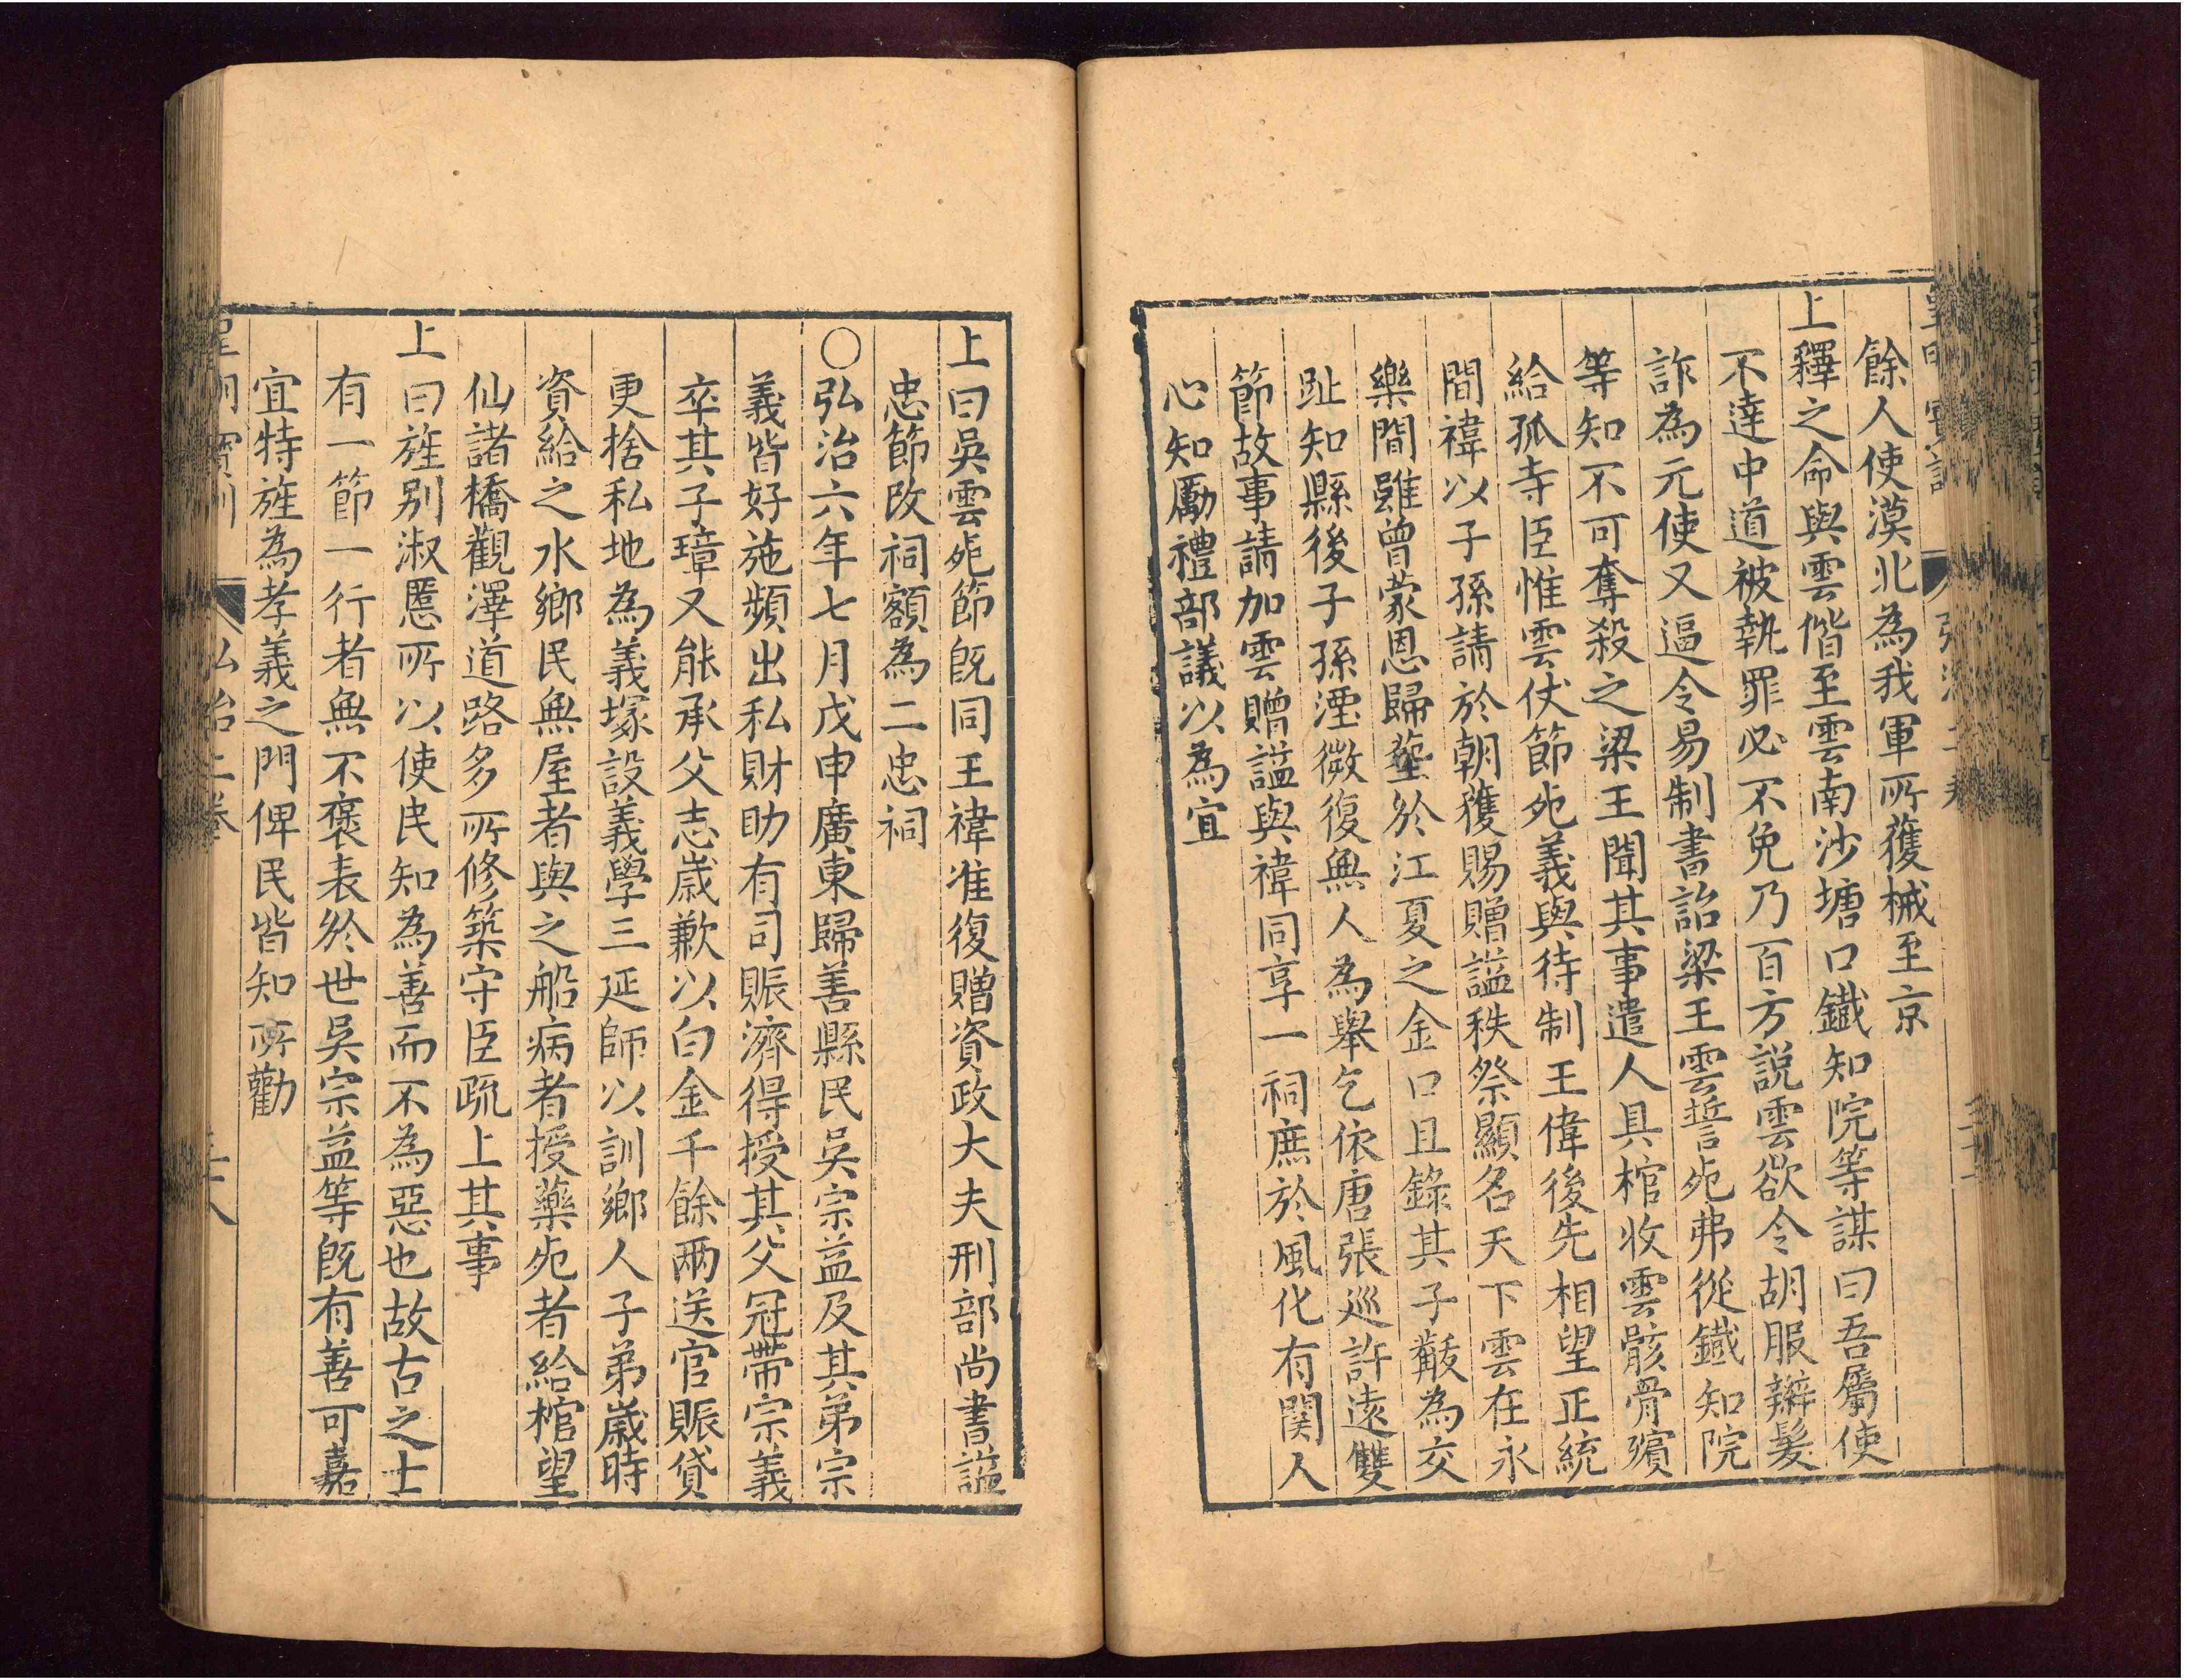 餘人使漠北為我軍所獲械至京
上釋之命與雲偕至雲南沙塘口鐵知院等謀曰吾屬使
不達中道被執罪必不免乃百方説雲欲令胡服辮髮
詐為元使又逼令易制書詒梁王雲誓死弗從鐵知院
等知不可奪殺之梁王聞其事遣人具棺收雲骸骨殯
給孤寺臣惟雲伏節死義與待制王偉後先相望正統
間禕以子孫請於朝獲賜贈謚秩祭顯名天下雲在永
樂間雖曾蒙恩歸塟於江夏之金口且錄其子黻為交
趾知縣後子孫湮微復無人為舉乞依唐張巡許遠雙
節故事請加雲贈謚與禕同享一祠庶於風化有関人
心知勵禮部議以為宜
上曰吳雲死節旣同王禕准復贈資政大夫刑部尚書謚
忠節改祠額為二忠祠
○弘治六年七月戊申廣東歸善縣民吳宗益及其弟宗
義皆好施頻出私財助有司賑濟得授其父冠帶宗義
卒其子璋又能承父志歲歉以白金千餘兩送官賑貸
更捨私地為義塚設義學三延師以訓鄉人子弟歲時
資給之水鄉民無屋者與之船病者授藥死者給棺望
仙諸橋觀澤道路多所修築守臣疏上其事
上曰旌别淑慝所以使民知為善而不為惡也故古之士
有一節一行者無不褒表於世吳宗益等旣有善可嘉
宜特旌為孝義之門俾民皆知所勸